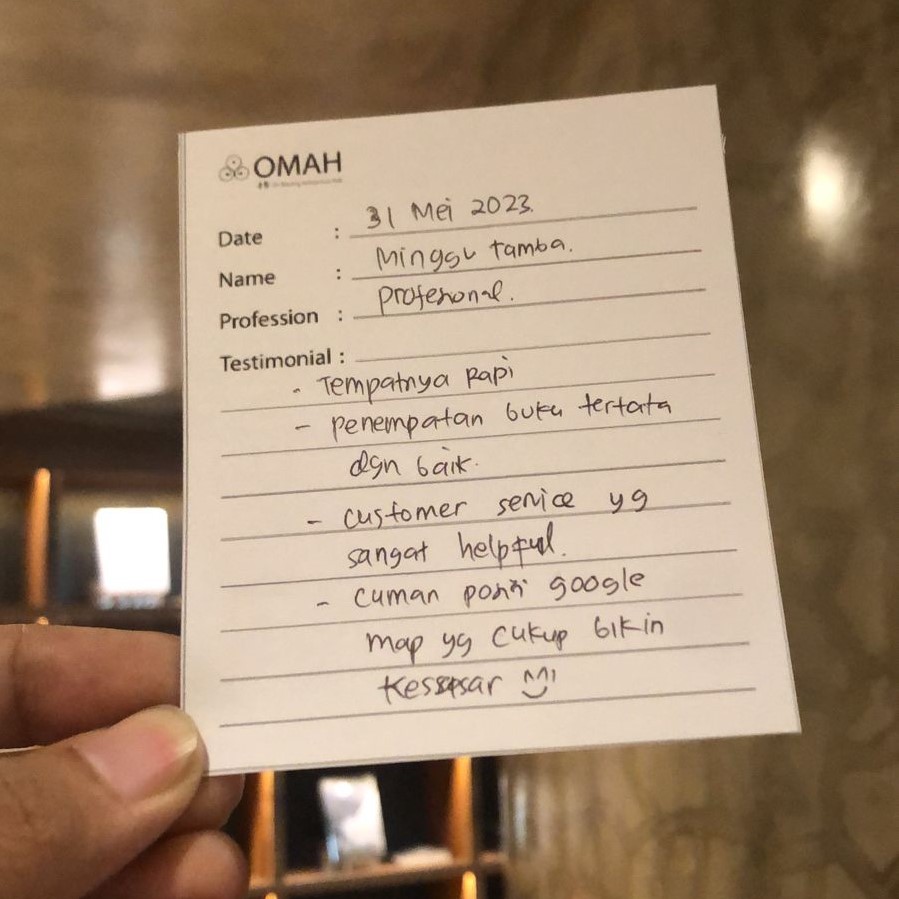 OMAH
Date : 31 Mei 2023.
Name : Minggu tamba.
Profession : Profesional.
Testimonial :
- Tempatnya Rapi
- penempatan buku tertata
dgn baik.
- customer service yg
sangat helpful.
- Cuman posisi google
map yg cukup bikin
Kesasar